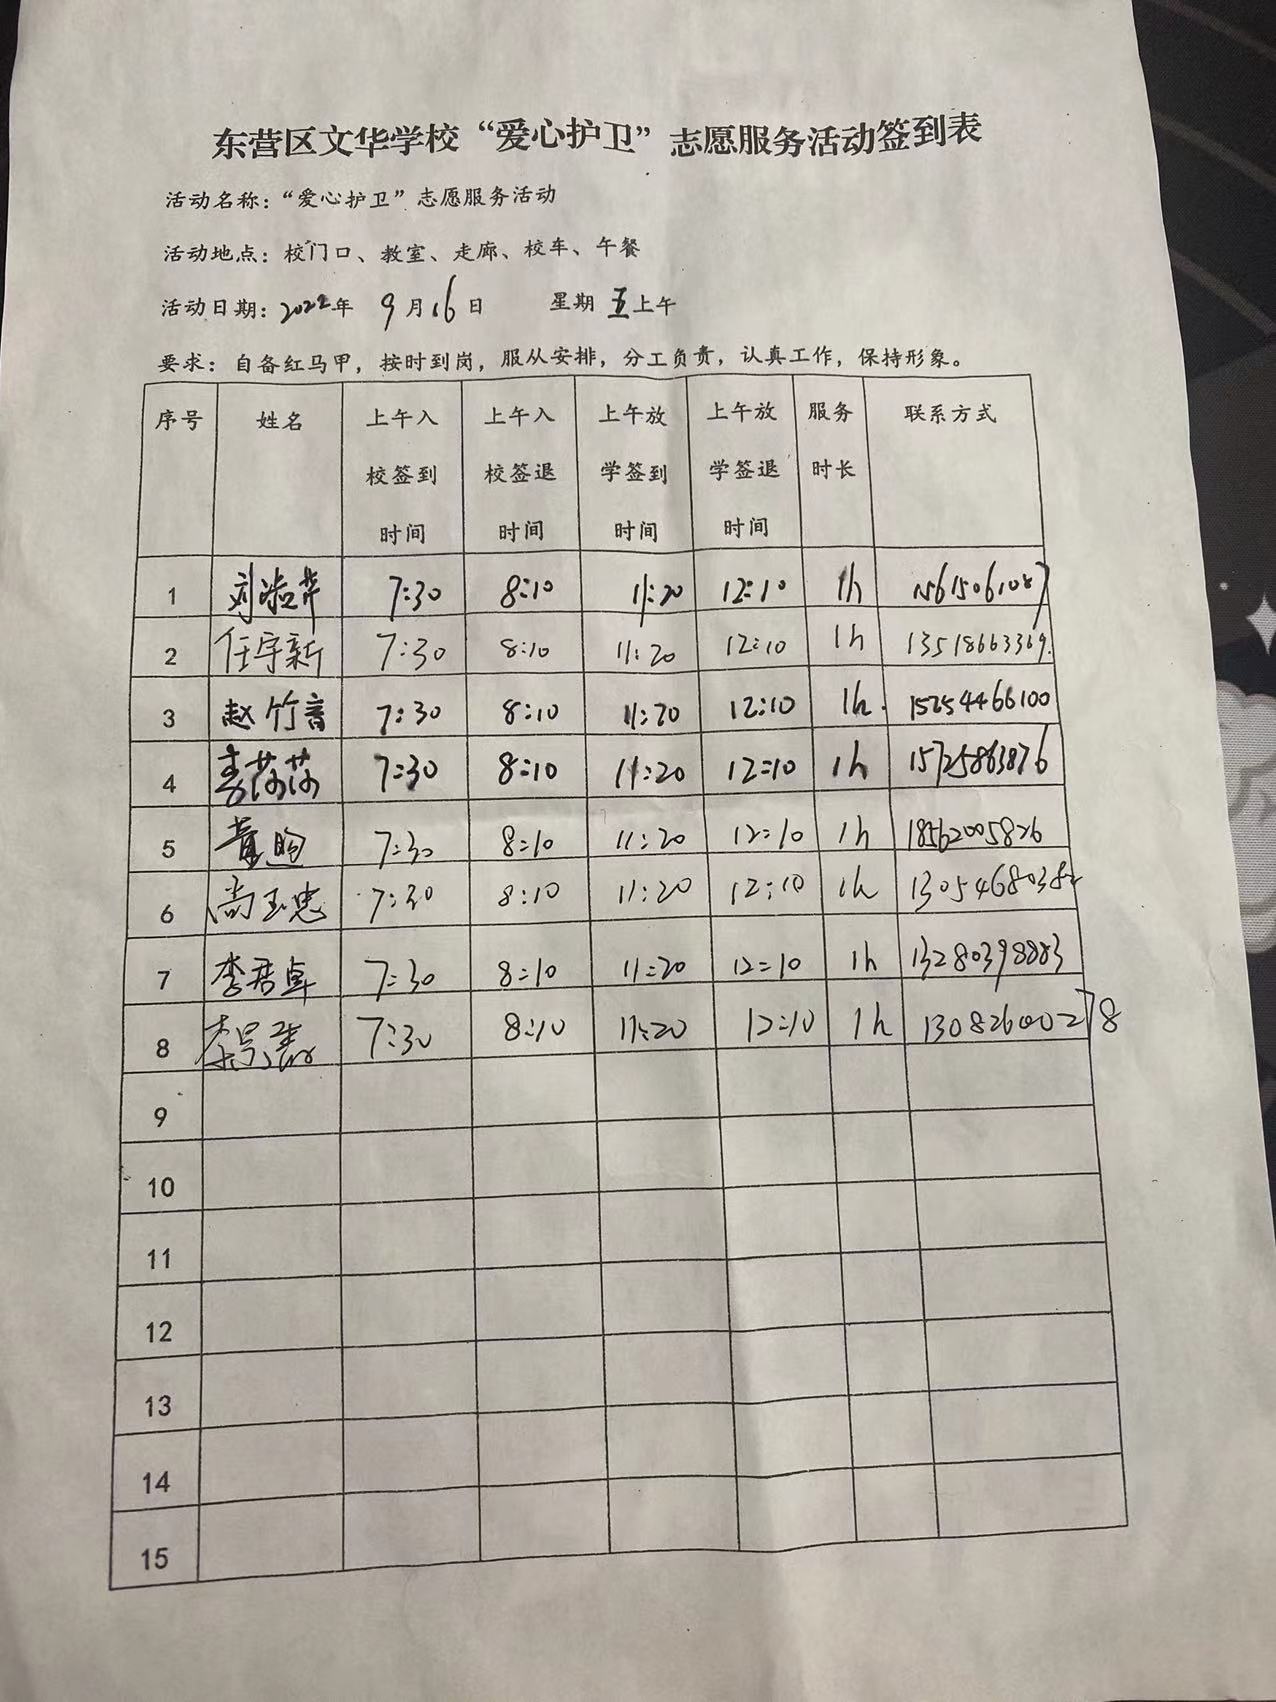 东营区文华学校“爱心护卫”志愿服务活动签到表
活动名称：“爱心护卫”志愿服务活动
活动地点：校门口、教室、走廊、校车、午餐
活动日期：2022年 9月16日 星期五上午
要求：自备红马甲，按时到岗，服从安排，分工负责，认真工作，保持形象。
序号 姓名 上午入校签到时间 上午入校签退时间 上午放学签到时间 上午放学签退时间 服务时长 联系方式
1 7:30 8:10 11:20 12:10 1h 15615061087
2 任宇新 7:30 8:10 11:20 12:10 1h 13518663369
3 赵竹音 7:30 8:10 11:20 12:10 1h. 15254466100
4 李莎莎 7:30 8:10 11:20 12:10 1h 15725863876
5 7:30 8:10 11:20 12:10 1h 18562005826
6 尚玉忠 7:30 8:10 11:20 12:10 1h
7 李君卓 7:30 8:10 11:20 12:10 1h 13280398883
8 7:30 8:10 11:20 12:10 1h 13082600278
9
10
11
12
13
14
15